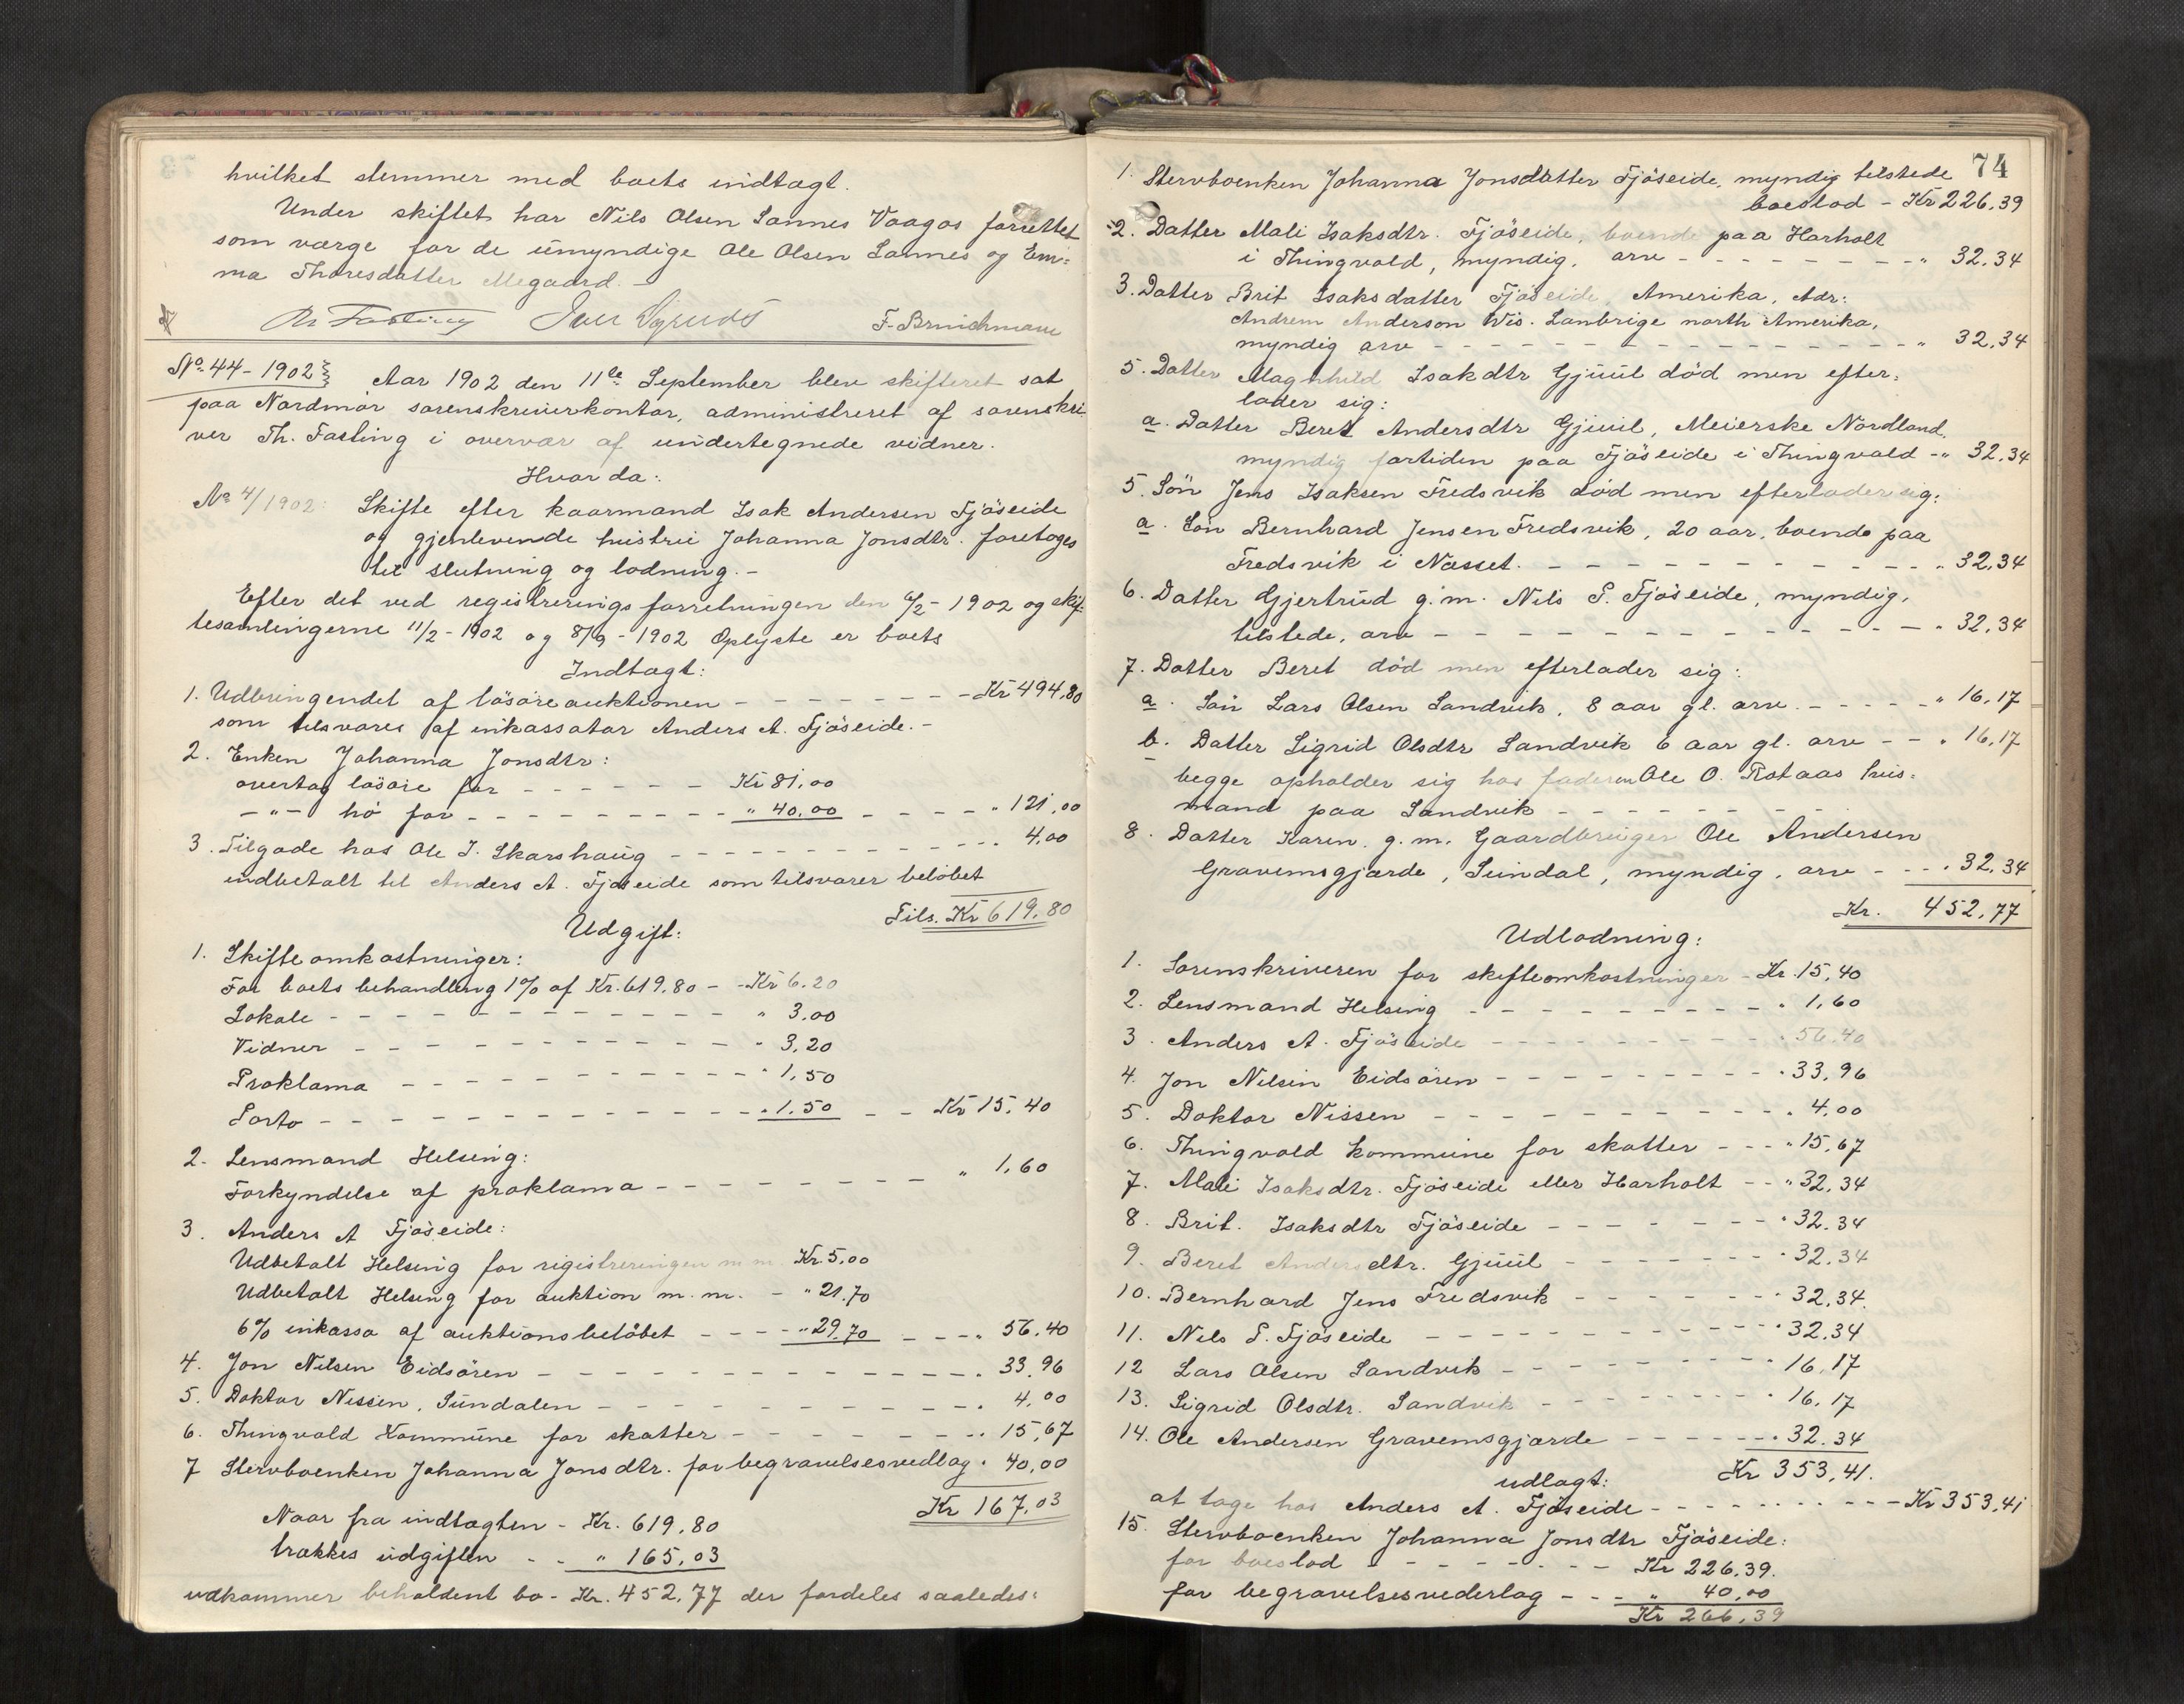 hvilket stemmer med boets indtægt.
Under skiftet har Nils Olsen Sannes Vaagos forrettet
som værge for de umyndige Ole Olsen Sannes og Em=
ma Thoresdatter Megaard. –
Th Fasting F. Brinchmann
No. 44 – 1902 Aar 1902 den 11te September blev skifteret sat
paa Nordmör sorenskriverkontor, administreret af sorenskri
ver Th. Fasting i overvær af undertegnede vidner.
Hvor da:
No 4/1902: Skifte efter kaarmand Isak Andersen Fjöseide
og gjenlevende hustru Johanna Jonsdtr. foretoges
til slutning og lodning. –
Efter det ved registreringsforretningen den 6/2 – 1902 og skif=
tesamlingerne 11/2 – 1902 og 8/9 – 1902 Oplyste er boets
Indtægt:
1. Udbringendet af lösöreauktionen – – – – – – – Kr 494,80
som tilsvares af inkassator Anders A. Fjöseide. –
2. Enken Johanna Jonsdtr:
overtog lösöre for – – – – – – Kr 81,00
– " – hö for – – – – – – – – – " 40,00 – – – – " 121,00
3. Tilgode hos Ole J. Skarshaug – – – – – – – – – – – – " 4,00
indbetalt til Anders A. Fjöseide som tilsvarer belöbet
Tils. Kr 619,80
Udgift:
1. Skifteomkostninger:
For boets behandling 1% af Kr. 619,80 – – Kr 6.20
Lokale – – – – – – – – – – – – " 3,00
Vidner – – – – – – – – – – – – " 3,20
Proklama – – – – – – – – – – – " 1,50
Porto – – – – – – – – – – – – – " 1.50 – – Kr 15,40
2. Lensmand Helsing:
Forkyndelse af proklama – – – – – – – – – " 1,60
3. Anders A Fjöseide:
Udbetalt Helsing for registreringen m m. Kr. 5,00
Udbetalt Helsing for auktion m. m. – " 21.70
6% inkasso af auktionsbelöbet – – – – " 29,70 – – – – " 56,40
4. Jon Nilsen Eidsören – – – – – – – – – – – – – – – " 33,96
5. Doktor Nissen, Sundalen – – – – – – – – – – – – – " 4,00
6. Thingvold Kommune for skatter – – – – – – – – " 15,67
7 Stervboenken Johanna Jonsdtr. for begravelsesvedlag " 40,00
Kr 167,03
Naar fra indtægten – Kr. 619,80
trækkes udgiften – – " 165,03
udkommer beholdent bo – Kr. 452,77 der fordeles saaledes:
74
1. Stervboenken Johanna Jonsdatter Fjöseide, myndig tilstede
boeslod – Kr 226,39
2. Datter Mali Isaksdtr. Fjöseide, boende paa Harholt
i Thingvold, myndig, arv – – – – – – – – – " 32,34
3. Datter Brit Isaksdatter Fjöseide, Amerika, Adr:
Andrem Anderson Wis. Lanbrige north Amerika,
myndig arv – – – – – – – – – – – – – – – – – " 32,34
5. Datter Magnhild Isakdtr Gjuul död men efter=
lader sig:
a. Datter Beret Andersdtr Gjuul, Meierske Nordland,
myndig fortiden paa Fjöseide i Thingvold – " 32,34
5. Sön Jens Isaksen Fredsvik död men efterlader sig:
a. Sön Bernhard Jensen Fredsvik, 20 aar, boende paa
Fredsvik i Næsset. – – – – – – – – – – – – – " 32,34
6. Datter Gjertrud g. m. Nils P. Fjöseide, myndig,
tilstede, arv – – – – – – – – – – – – – – – – " 32,34
7. Datter Beret död men efterlader sig:
a. Sön Lars Olsen Sandvik, 8 aar gl. arv. – – – – – " 16,17
b. Datter Sigrid Olsdtr Sandvik 6 aar gl. arv – – " 16,17
begge opholder sig hos faderen Ole O. Rötaas hus=
mand paa Sandvik – – – – – – – – –
8. Datter Karen g. m. Gaardbruger Ole Andersen
Gravemsgjærde, Sundal, myndig, arv – – – " 32,34
Kr. 452,77
Udlodning:
1. Sorenskriveren for skifteomkostninger – Kr. 15,40
2. Lensmand Helsing – – – – – – – – – – " 1,60
3. Anders A. Fjöseide – – – – – – – – – – " 56.40
4. Jon Nilsen Eidsören – – – – – – – – – – " 33,96
5. Doktor Nissen – – – – – – – – – – – – " 4,00
6. Thingvold kommune for skatter – – – " 15,67
7. Mali Isaksdtr. Fjöseide eller Harholt – – " 32,34
8. Brit. Isaksdtr Fjöseide – – – – – – – – " 32.34
9. Beret Andersdtr. Gjuul – – – – – – – " 32,34
10. Bernhard Jens Fredsvik – – – – – – – " 32,34.
11. Nils P. Fjöseide – – – – – – – – – – – – " 32,34
12 Lars Olsen Sandvik – – – – – – – – – " 16,17
13. Sigrid Olsdtr. Sandvik – – – – – – – – " 16,17
14. Ole Andersen Gravemsgjærde – – – – – – " 32.34
Kr 353,41.
udlagt:
at tage hos Anders A. Fjöseide – – – – – – – – – – Kr 353,41
15. Stervboenken Johanna Jonsdtr Fjöseide:
for boeslod – – – – – – – – Kr 226,39.
for begravelsesvederlag – – – " 40,00
Kr 266,39